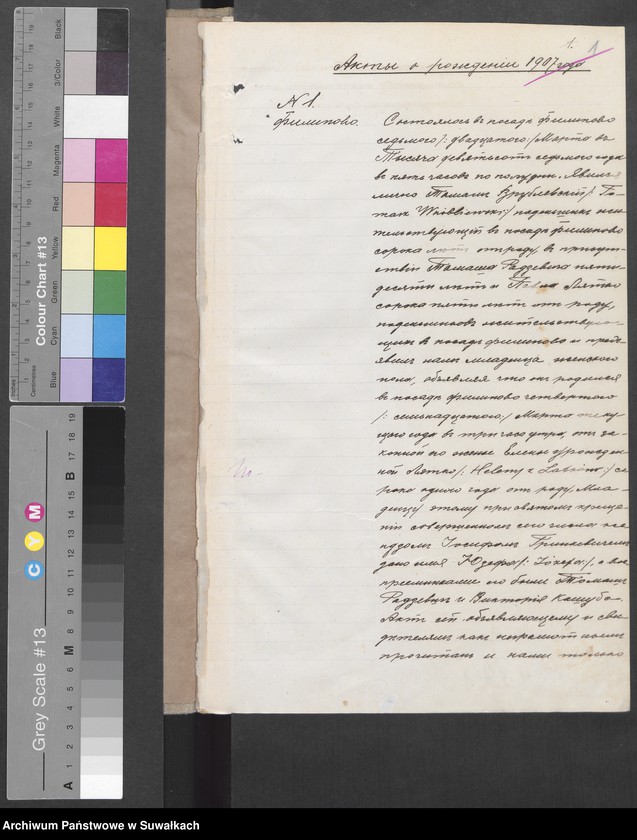 1. 1
Акты о рожденіи 1907 года
N 1.
Филипово.
Состоялось въ посадѣ Филипово
седьмого /: двадцатого / Марта въ
Тысяча девятьсотъ седьмого года
въ пять часовъ по полудни. Явился
лично Томашъ Врублевскій /: To-
masz Wróblewski :/ поденщикъ жи-
тельствующій въ посадѣ Филипово
сорока лѣтъ отъ роду, въ присут-
ствіи Томаша Радзевича пяти-
десяти лѣтъ и Павла Лятко
сорока пяти лѣтъ отъ роду,
поденщиковъ жительствую-
щихъ въ посадѣ Филипово и предъ-
явилъ намъ младенца женского
пола, объявляя что онъ родился
въ посадѣ Филипово четвертого
/: семнадцатого :/ Марта теку-
щого года въ три часа утра, отъ за-
конной его жены Елены урожден-
ной Лятко /: Heleny z :/ со-
рока одного года отъ роду. Мла-
денцу этому при святомъ креще-
ніи совершенномъ сего числа ксе-
ндзомъ Іосифомъ Гринкевичемъ
дано имя Юзефа /: Józefa :/, а вос-
преемниками его были Томашъ
Радзевичъ и Викторія Кашуба.
Актъ сей объявляющему и сви-
дѣтелямъ какъ неграмотнымъ
прочитанъ и нами только
Colour Chart #13
Blue
Cyan
Green
Yellow
Red
Magenta
White
3/Color
Black
Inches
Centimetres
Grey Scale #13
C Y M
A 1 2 3 4 5 6 M 8 9 10 11 12 13 14 15 B 17 18 19
Archiwum Państwowe w Suwałkach